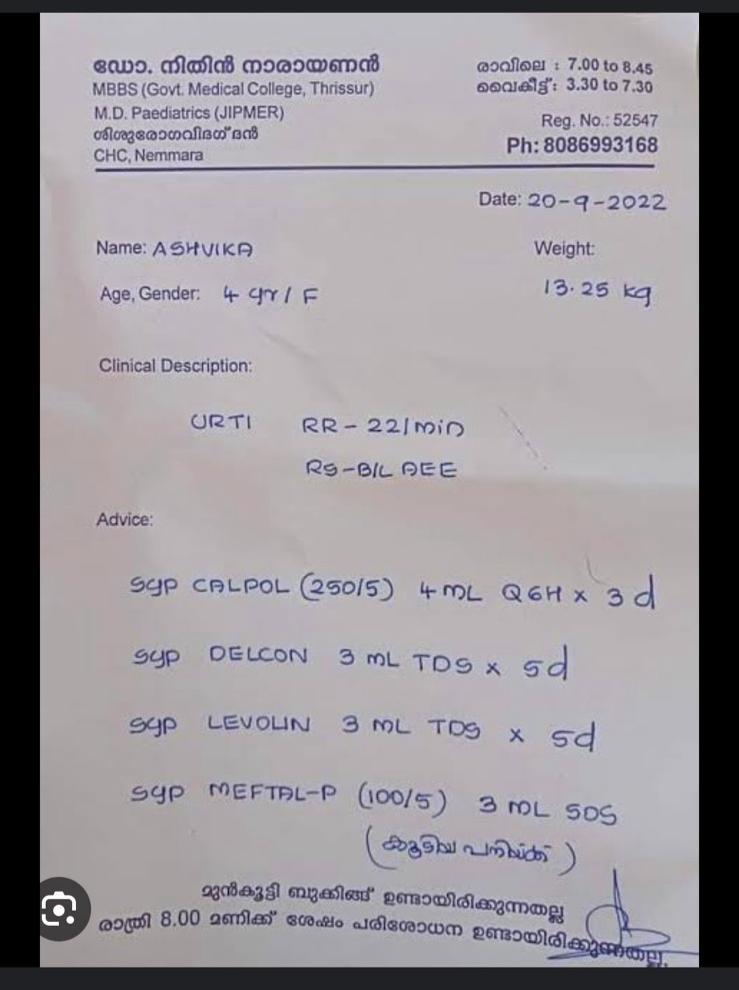 ഡോ. നിതിൻ നാരായണൻ
MBBS (Govt. Medical College, Thrissur)
M.D. Paediatrics (JIPMER)
ശിശുരോഗവിദഗ്ദ്ധൻ
CHC, Nemmara
രാവിലെ : 7.00 to 8.45
വൈകീട്ട്: 3.30 to 7.30
Reg. No.: 52547
Ph: 8086993168
Date: 20-9-2022
Name: ASHVIKA
Weight:
Age, Gender: 4 yr / F
13.25 kg
Clinical Description:
URTI RR - 22/min
RS - B/L AEE
Advice:
Syp CALPOL (250/5) 4 mL Q6H x 3 d
Syp DELCON 3 mL TDS x 5d
Syp LEVOLIN 3 mL TDS x 5d
Syp MEFTAL-P (100/5) 3 mL SOS
(കൂടിയ പനിയ്ക്ക്)
മുൻകൂട്ടി ബുക്കിങ്ങ് ഉണ്ടായിരിക്കുന്നതല്ല
രാത്രി 8.00 മണിക്ക് ശേഷം പരിശോധന ഉണ്ടായിരിക്കുന്നതല്ല.